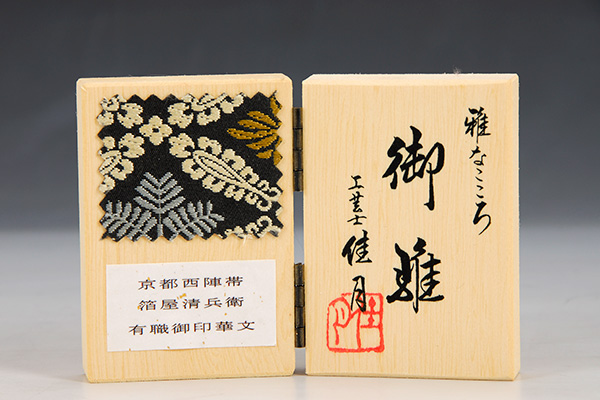 京都西陣帯
箔屋清兵衛
有職御印華文
雅なこころ
御雛
工芸士 佳月